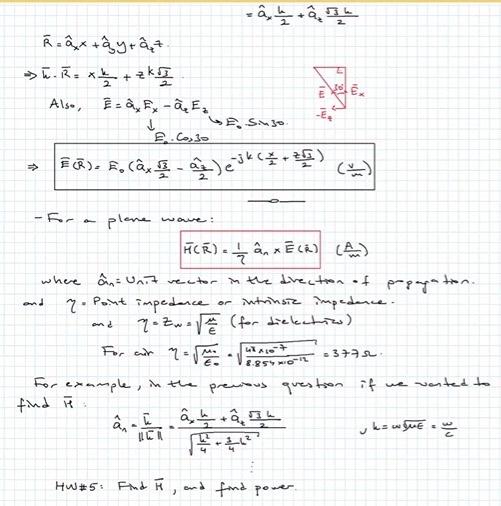 = âₓ k/2 + â_z √3 k/2
R̄ = âₓx + â_y y + â_z z.
⇒ k̄·R̄ = x k/2 + z k√3/2
Also, Ē = âₓEₓ - â_zE_z
E₀.Sin30.
E₀.Cos30
30°
Ē
Ēₓ
-Ē_z
⇒ Ē(R̄) = E₀(âₓ √3/2 - â_z/2) e^(-jk(x/2 + z√3/2)) (V/m)
- For a plane wave:
H̄(R̄) = 1/η âₙ × Ē(R̄) (A/m)
where âₙ = Unit vector in the direction of propagation.
and η = Point impedance or intrinsic impedance.
and η = Z_w = √(μ/ε) (for dielectrics)
For air η = √(μ₀/ε₀) = √(4π×10⁻⁷/8.854×10⁻¹²) = 377Ω.
For example, in the previous question if we wanted to
find H̄:
âₙ = k̄/||k̄|| = (âₓ k/2 + â_z √3 k/2)/√(k²/4 + 3/4 k²) , k = ω√με = ω/c
⋮
HW#5: Find H̄, and find power.